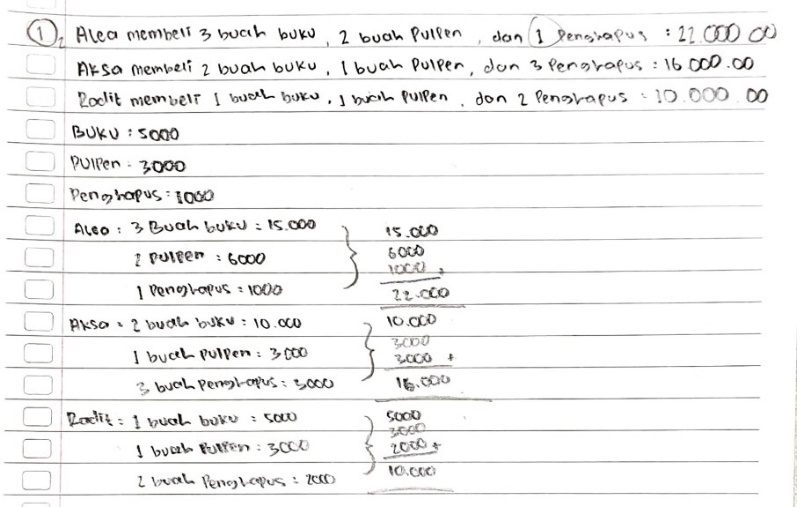 1, Alea membeli 3 buah buku, 2 buah Pulpen, dan 1 Penghapus : 22.000 00
Aksa membeli 2 buah buku, 1 buah Pulpen, dan 3 Penghapus : 16 000.00
Radit membeli 1 buah buku, 1 buah Pulpen, dan 2 Penghapus : 10.000 00
BUKU : 5000
PUlPen : 3000
Penghapus : 1000
Alea : 3 Buah buku : 15.000 15.000
2 Pulpen : 6000 6000
1000 +
1 Penghapus : 1000 22.000
Aksa : 2 buah buku : 10.000 10.000
3000
1 buah Pulpen : 3000 3000 +
3 buah Penghapus : 3000 16.000
Radit : 1 buah buku : 5000 5000
3000
1 buah Pulpen : 3000 2000 +
2 buah Penghapus : 2000 10.000